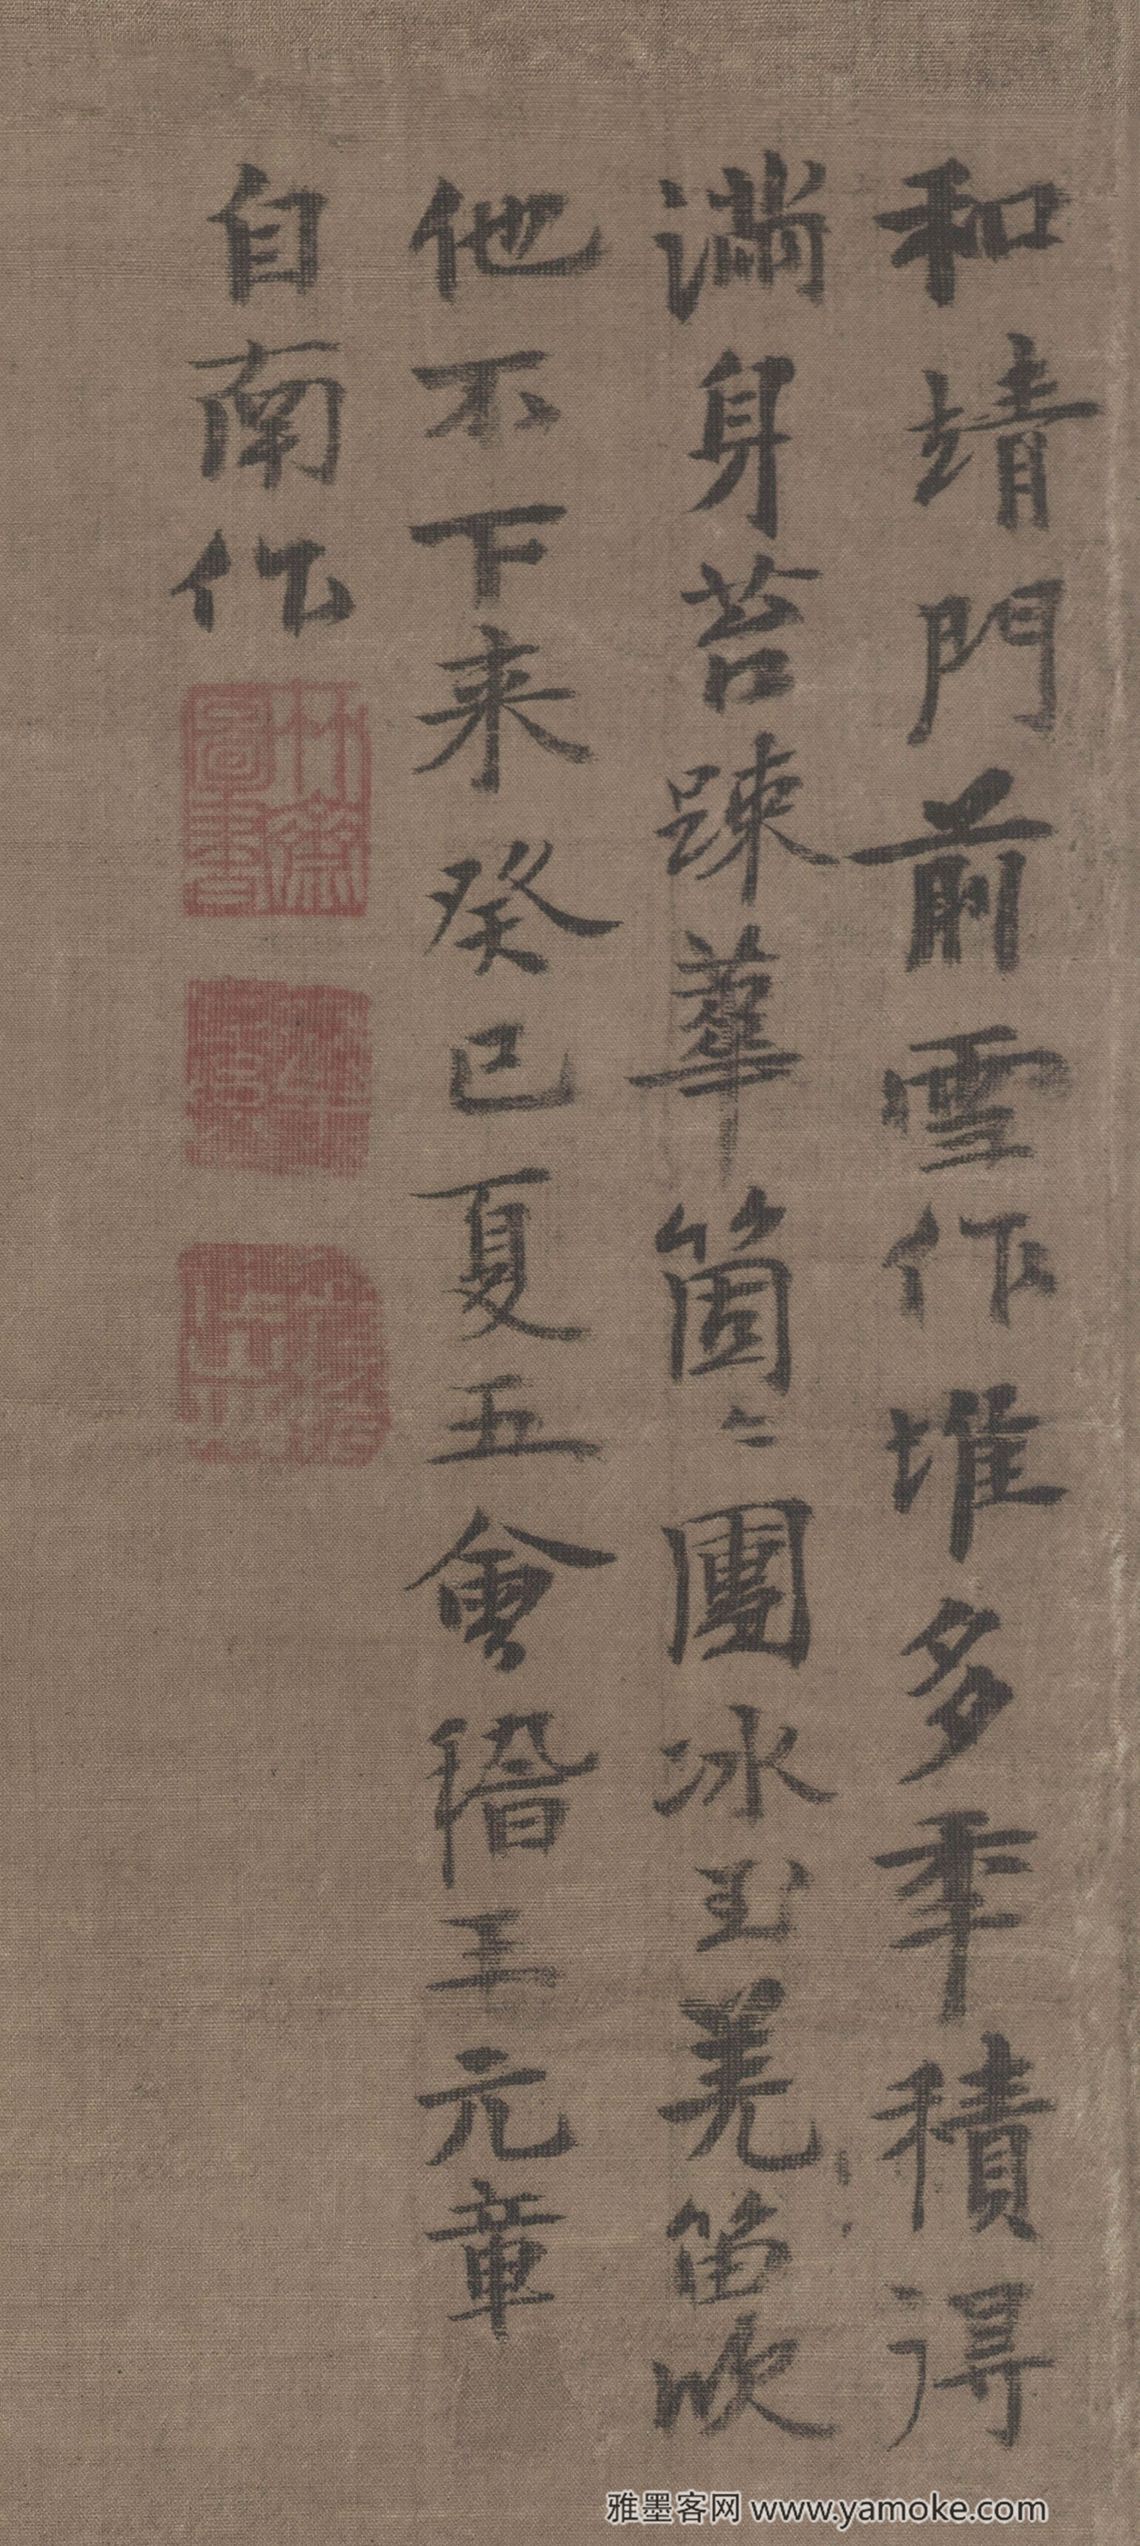 和靖門前雪作堆多年積得
滿身苔踈華箇〻團冰玉羌笛吹
他不下来癸巳夏五會稽王元章
自南作
竹齋圖書
雅墨客网 www.yamoke.com